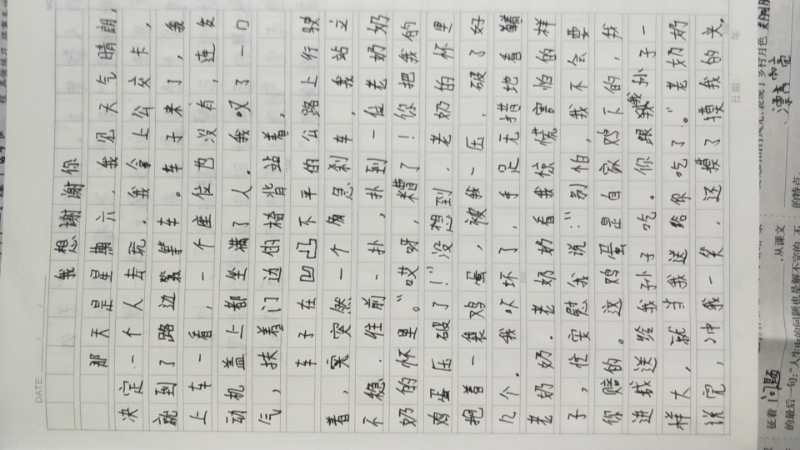 DATE
我想谢谢你
那天是星期六,我见天气晴朗,
决定一个人去玩,我拿上公交卡,
就到了路边等车。车子来了,我
上车一看,一个座位为没有,连发
动机盖上都坐满了人。我叹了一口
气,扶着门边的椅背站着。
车子在凹凸不平的公路上行驶
着,突然一个急刹车,我站立
不稳,往前一扑,扑到一位老奶奶
奶的怀里。"哎呀,糟了!你把我的
鸡蛋压破了!"没想到,老奶的怀里
抱着一袋鸡蛋,被我一压,破了好
几个。我吓坏了,手足无措地看着
老奶奶。老奶奶看我惊慌害怕的样
子,忙安慰我说:"别怕,我不会要
你赔的。这鸡蛋是自家鸡下的,我
进城送给我孙子吃。你跟我孙子一
样大,就当我送给你吃了。"老奶奶
说完,冲我一笑,还摸了摸我的头。
日期
征着问题
的最后一句:"人生中的问题也是解不完的
从课文
的特点